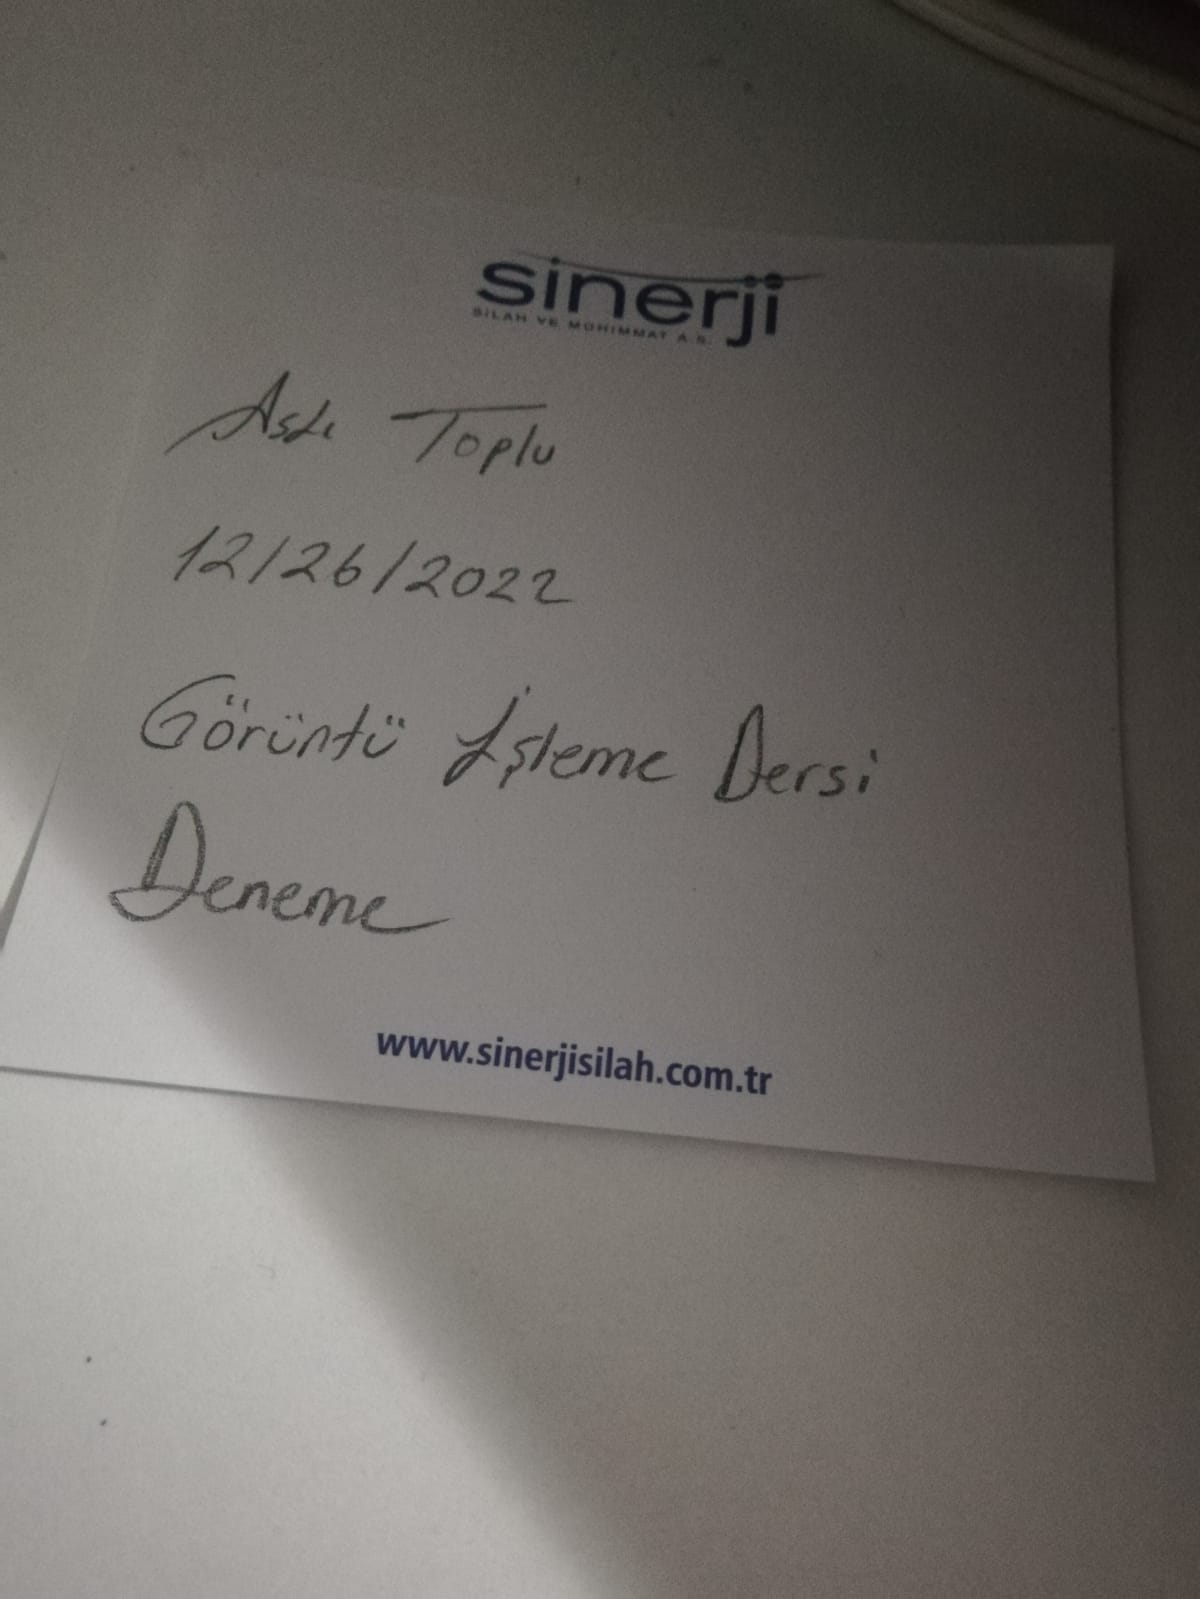 sinerji
SİLAH VE MÜHİMMAT A.Ş.
Aslı Toplu
12/26/2022
Görüntü İşleme Dersi
Deneme
www.sinerjisilah.com.tr